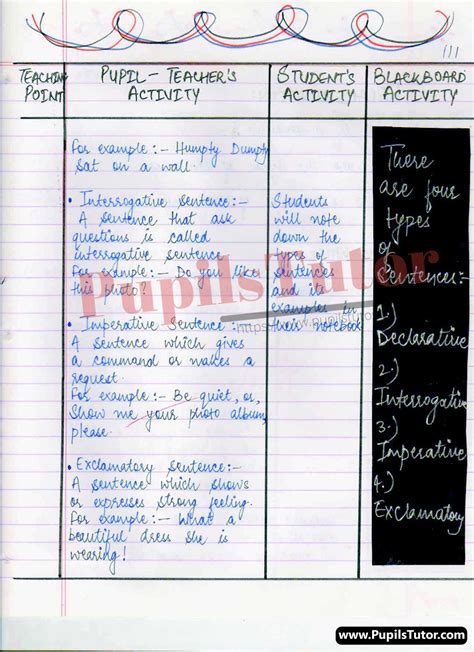 111
TEACHING POINT
PUPIL - TEACHER'S ACTIVITY
STUDENT'S ACTIVITY
BLACKBOARD ACTIVITY
For example :- Humpty Dumpty
Sat on a wall.
• Interrogative Sentence :-
A Sentence that ask
questions is called
interrogative sentence
For example :- Do you like
this photo?
• Imperative Sentence :-
A Sentence which gives
a command or makes a
request.
For example :- Be quiet, or,
Show me your photo album,
please.
• Exclamatory Sentence :-
A Sentence which shows
or expresses strong feeling.
For example :- What a
beautiful dress she is
wearing!
Students
will note
down the
types of
sentences
and its
examples in
their notebook
There
are four
types
of
Sentences:-
1.)
Declarative
2.)
Interrogative
3.)
Imperative
4.)
Exclamatory
PupilsTutor
https://www.pupilstutor
www.PupilsTutor.com